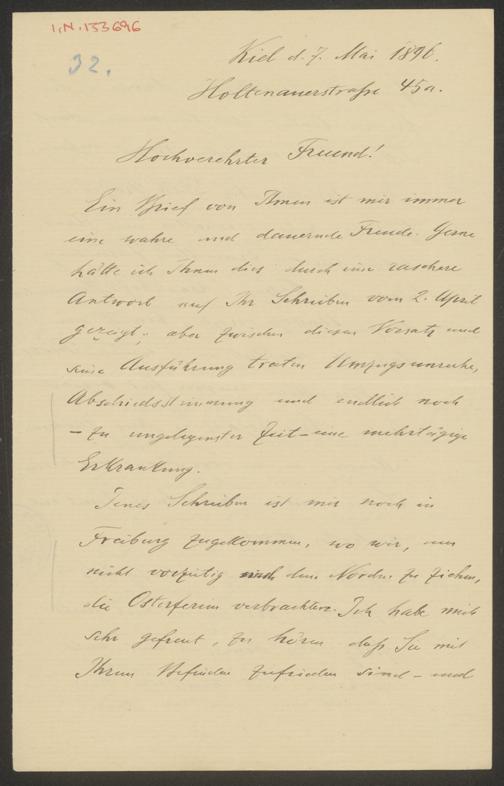 I.N. 133696
32.
Kiel d. 7. Mai 1896.
Holtenauerstraße 45a.
Hochverehrter Freund!
Ein Brief von Ihnen ist mir immer
eine wahre und dauernde Freude. Gerne
hätte ich Ihnen dies durch eine raschere
Antwort auf Ihr Schreiben vom 2. April
gezeigt; aber zwischen diesen Vorsatz und
seine Ausführung traten Umzugsunruhe,
Abschiedsstimmung und endlich noch
– zu ungelegenster Zeit – eine mehrtägige
Erkrankung.
Jenes Schreiben ist mir noch in
Freiburg zugekommen, wo wir, um
nicht vorzeitig nach dem Norden zu ziehen,
die Osterferien verbrachten. Ich habe mich
sehr gefreut, zu hören daß Sie mit
Ihrem Befinden zufrieden sind – und